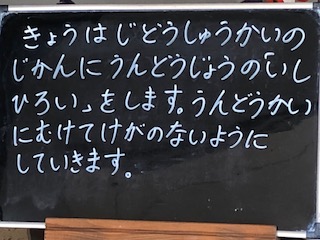 きょうはじどうしゅうかいの
じかんにうんどうじょうの「いし
ひろい」をします。うんどうかい
にむけてけがのないように
していきます。